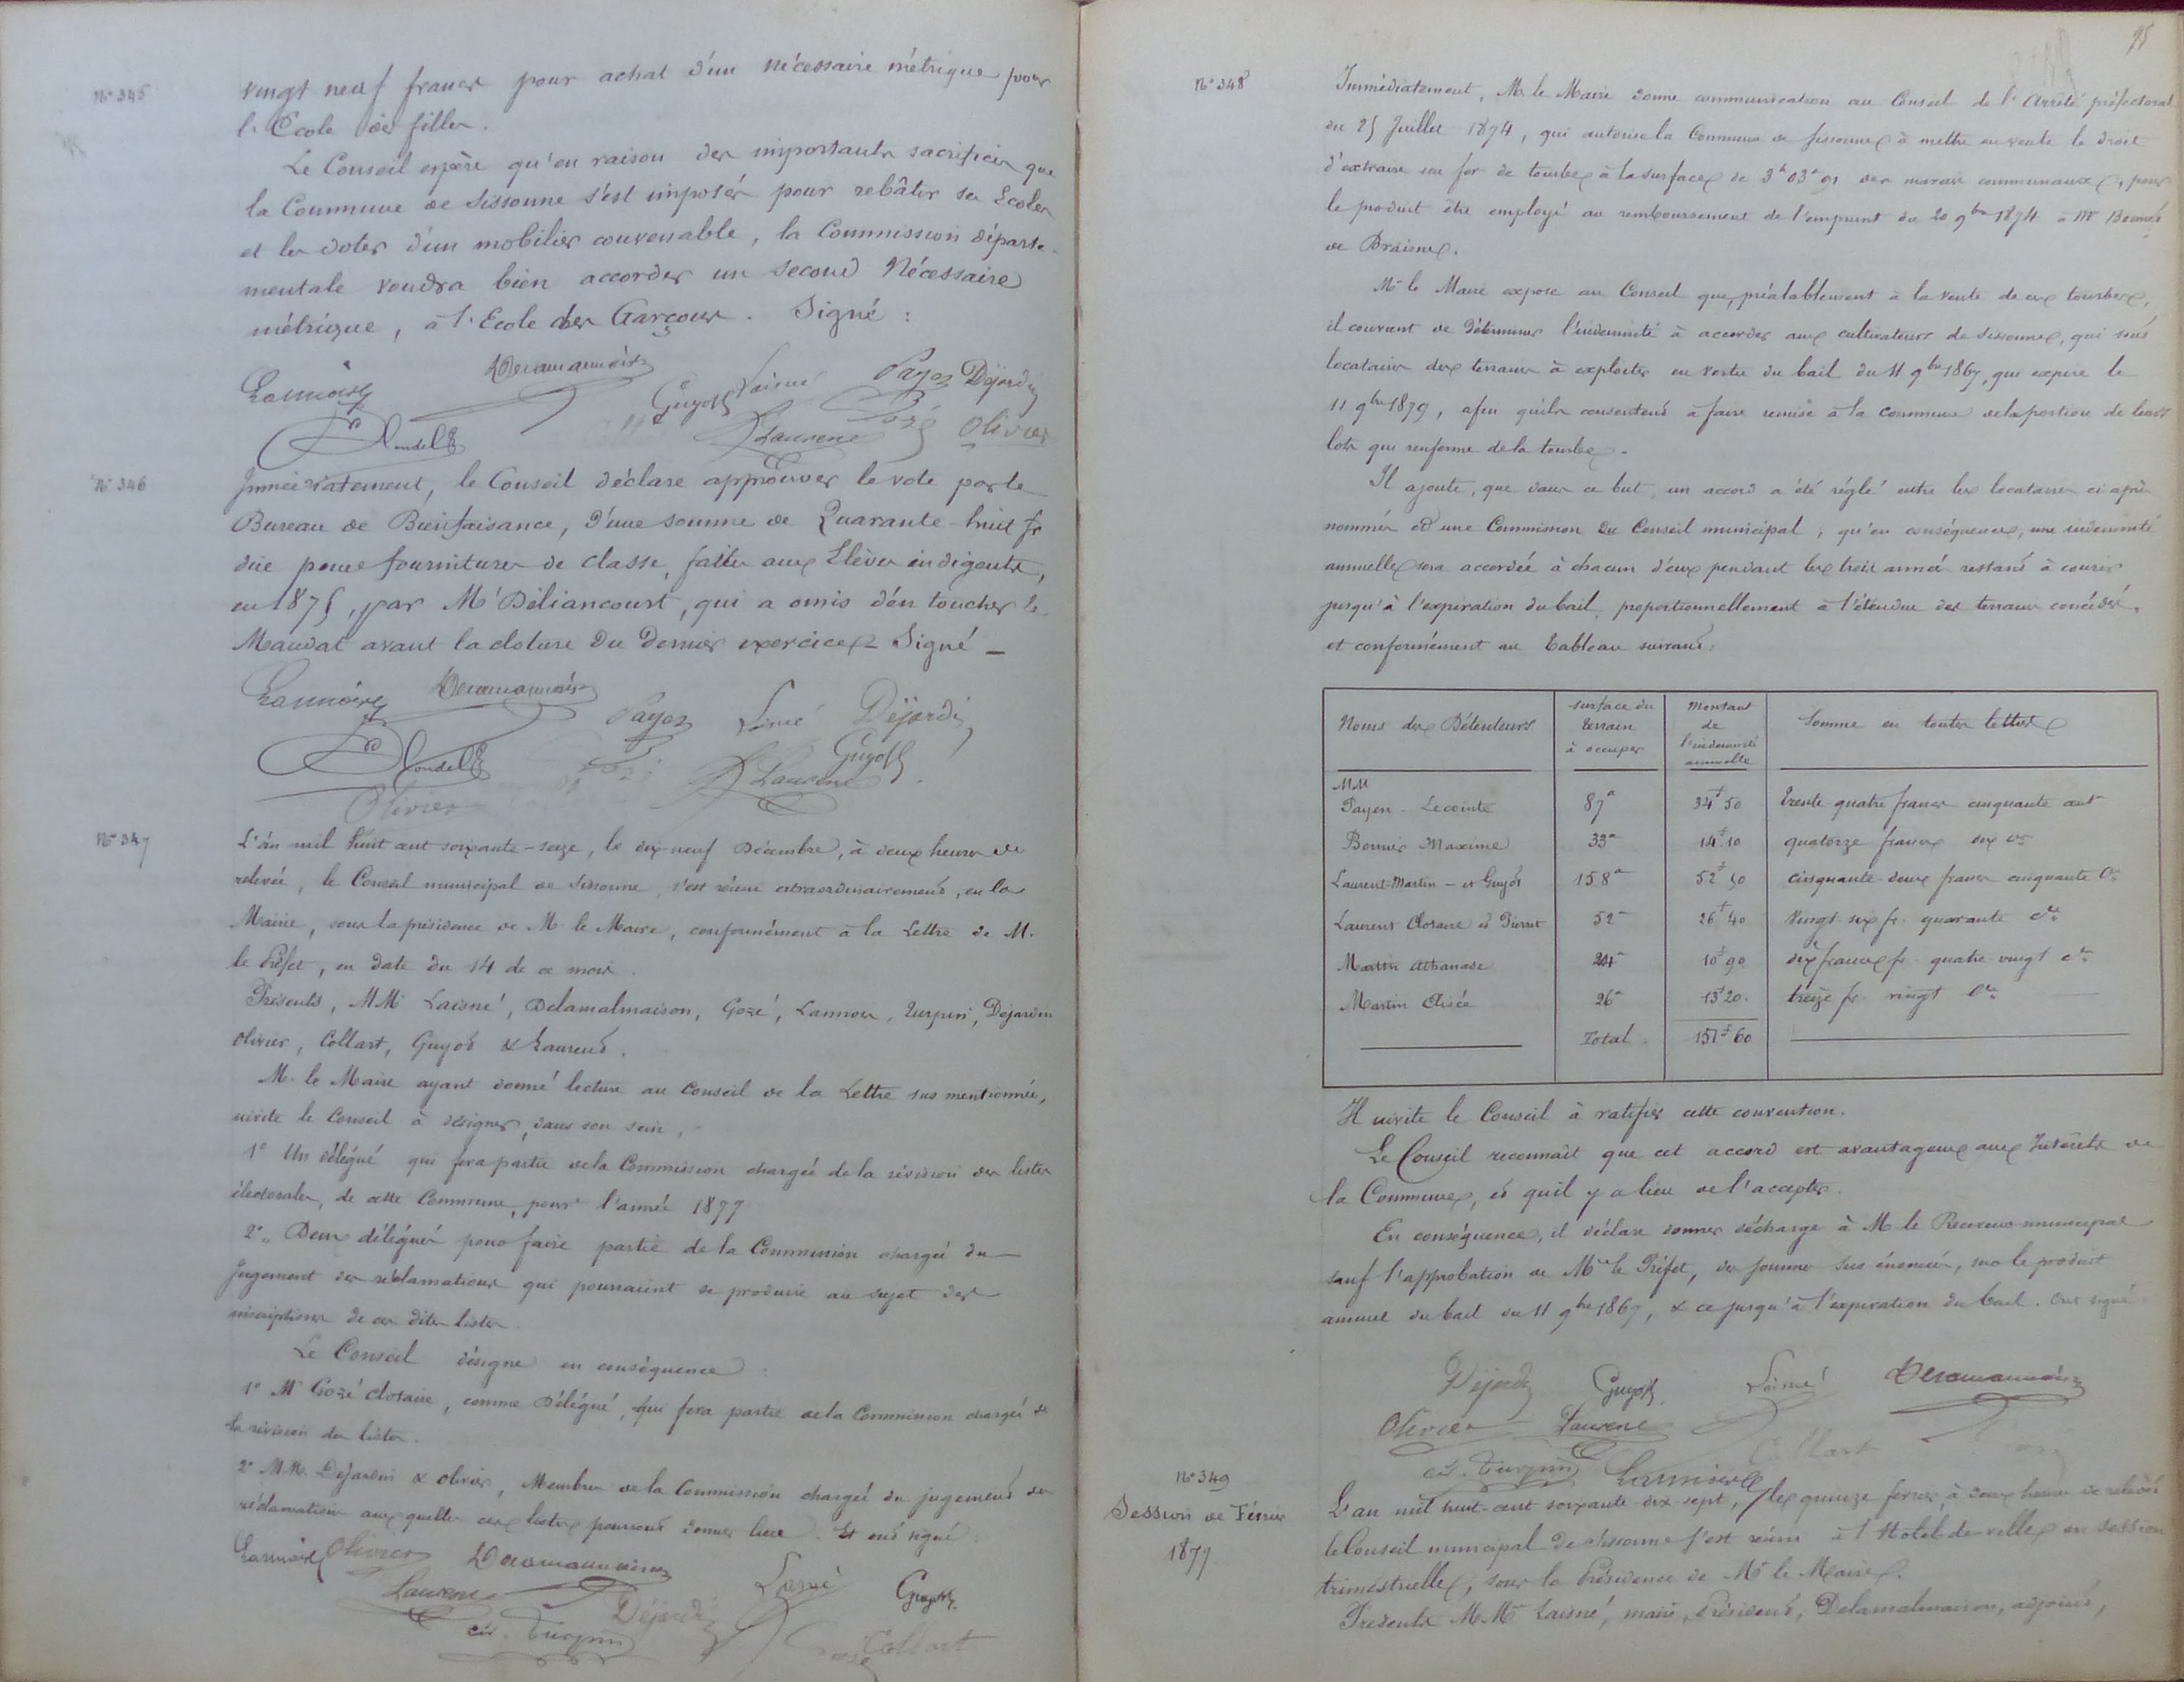 N° 345
vingt neuf francs pour achat d'un nécessaire métrique pour
l'Ecole des filles.
Le Conseil espère qu'en raison des importants sacrifices que
la Commune de Sissonne s'est imposés pour rebâtir ses Ecoles
et les doter d'un mobilier convenable, la Commission départe-
mentale voudra bien accorder un second Nécessaire
métrique, à l'Ecole des Garçons. Signé :
Lannois Delamalmaison Guyot Laisné Payen Dejardin
Blondelle Laurent Gozé Olivier
N° 346
Immédiatement, le Conseil déclare approuver le vote par le
Bureau de Bienfaisance, d'une somme de Quarante-huit fr
due pour fournitures de classe, faites aux Elèves indigents,
en 1875, par Mr Déliancourt, qui a omis d'en toucher le
Mandat avant la cloture du dernier exercice. Signé _
Lannois Delamalmaison Payen Laisné Dejardin
Blondelle Gozé Laurent Guyot
Olivier
N° 347
L'an mil huit cent soixante-seize, le dix-neuf Décembre, à deux heures de
relevée, le Conseil municipal de Sissonne, s'est réuni extraordinairement, en la
Mairie, sous la présidence de M. le Maire, conformément à la Lettre de M.
le Préfet, en date du 14 de ce mois.
Présents, MM. Laisné, Delamalmaison, Gozé, Lannois, Turpin, Dejardin
Olivier, Collart, Guyot & Laurent.
M. le Maire ayant donné lecture au Conseil de la Lettre sus mentionnée,
invite le Conseil à désigner, dans son sein,
1° Un délégué qui fera partie de la Commission chargée de la révision des listes
électorales, de cette Commune, pour l'année 1877
2°. Deux délégués pour faire partie de la Commission chargée du
Jugement des réclamations qui pourraient se produire au sujet des
inscriptions de ces dites listes.
Le Conseil désigne en conséquence :
1° Mr Gozé Clotaire, comme Délégué, qui fera partie de la Commission chargée de
la révision des listes.
2° MM. Dejardin & Olivier, Membres de la Commission chargée du jugement des
réclamations aux quelles ces listes pourront donner lieu. Et ont signé
Lannois Olivier Delamalmaison Laisné Guyot
Laurent Dejardin
Turpin Gozé Collart
95
N° 348
Immédiatement, M. le Maire donne communication au Conseil de l'Arrêté préfectoral
du 25 Juillet 1874, qui autorise la Commune de Sissonne à mettre en vente le droit
d'extraire un fer de tourbe à la surface de 3h 03a 91 des marais communaux, pour
le produit être employé au remboursement de l'emprunt du 20 9bre 1874 à Mr
de Braisne.
Mr le Maire expose au Conseil que, préalablement à la vente de ces tourbes,
il convient de déterminer l'indemnité à accorder aux cultivateurs de Sissonne, qui sont
locataires des terrains à exploiter en vertu du bail du 11 9bre 1867, qui expire le
11 9bre 1879, afin qu'ils consentent à faire remise à la commune de la portion de leurs
lots qui renferme de la tourbe.
Il ajoute, que dans ce but, un accord a été réglé entre les locataires ci après
nommés et une Commission du Conseil municipal ; qu'en conséquence, une indemnité
annuelle sera accordée à chacun d'eux pendant les trois années restant à courir
jusqu'à l'expiration du bail, proportionnellement à l'étendue des terrains concédés,
et conformément au Tableau suivant :
Noms des Détenteurs | surface du terrain à occuper | Montant de l'indemnité annuelle | Somme en toutes lettres
MM
Payen - Lecointe 87a 34f 50 Trente quatre francs cinquante cent
Bernier Maxime 33a 14f 10 quatorze francs dix cs
Laurent-Martin - et Guyot 158a 52f 50 cinquante-deux francs cinquante Cs
Laurent Clotaire et Pierret 52a 26f 40 Vingt-six fr. quarante Cs
Martin Athanase 24a 10f 90 dix francs fr. quatre-vingt Cs
Martin Elisée 26a 13f 20. treize fr. vingt Cs
Total. 151f 60
Il invite le Conseil à ratifier cette convention.
Le Conseil reconnaît que cet accord est avantageux aux Intérêts de
la Commune, et qu'il y a lieu de l'accepter.
En conséquence, il déclare donner décharge à M le Receveur municipal
sauf l'approbation de Mr le Préfet, des sommes sus énoncées, sur le produit
annuel du bail du 11 9bre 1867, & ce jusqu'à l'expiration du bail. Ont signé
Dejardin Guyot Laisné Delamalmaison
Olivier Laurent Collart
Turpin Lannois
N° 349
Session de Février
1877
L'an mil huit-cent soixante-dix-sept, le quinze février, à deux heures de relevée
le Conseil municipal de Sissonne s'est réuni à l'Hotel-de-ville en session
trimestrielle, sous la Présidence de Mr le Maire.
Présents M.M. Laisné, maire, Président, Delamalmaison, adjoint,